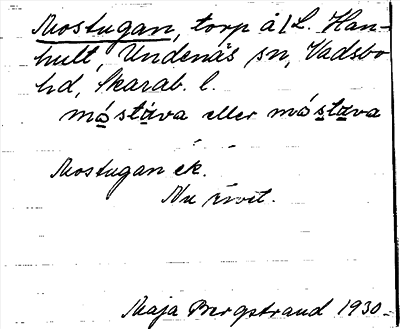 Mostugan, torp å L. Han-
hult, Undenäs sn, Vadsbo
hd, Skarab. l.
måstäva eller måstäva
Mostugan ek.
Nu rivet.
Maja Bergstrand 1930.